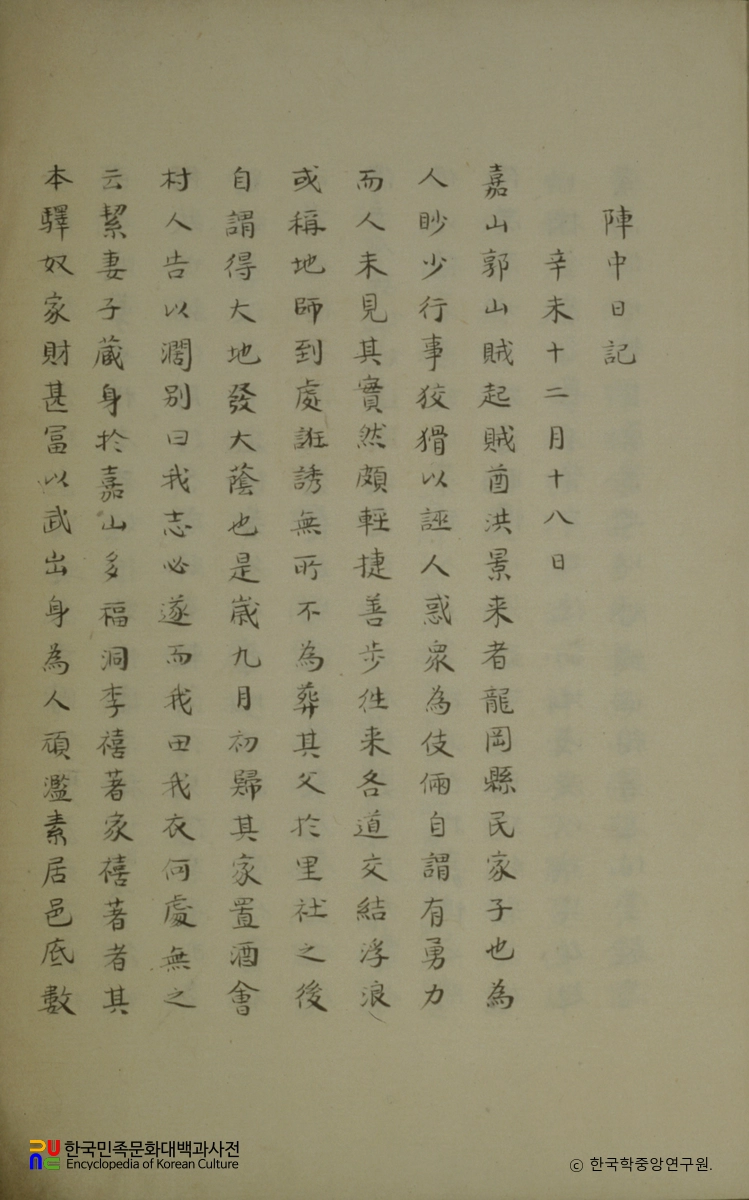 陣中日記
辛未十二月十八日
嘉山郭山賊起賊酋洪景来者龍岡縣民家子也為
人眇少行事狡猾以誣人惑衆為伎倆自謂有勇力
而人未見其實然頗輕捷善步徃来各道交結浮浪
或稱地師到處誑誘無所不為葬其父於里社之後
自謂得大地發大蔭也是歲九月初歸其家置酒會
村人告以濶別曰我志必遂而我田我衣何處無之
云絜妻子蔵身於嘉山多福洞李禧著家禧著者其
本驛奴家財甚冨以武出身為人頑濫素居邑底數
한국민족문화대백과사전
Encyclopedia of Korean Culture
ⓒ 한국학중앙연구원.